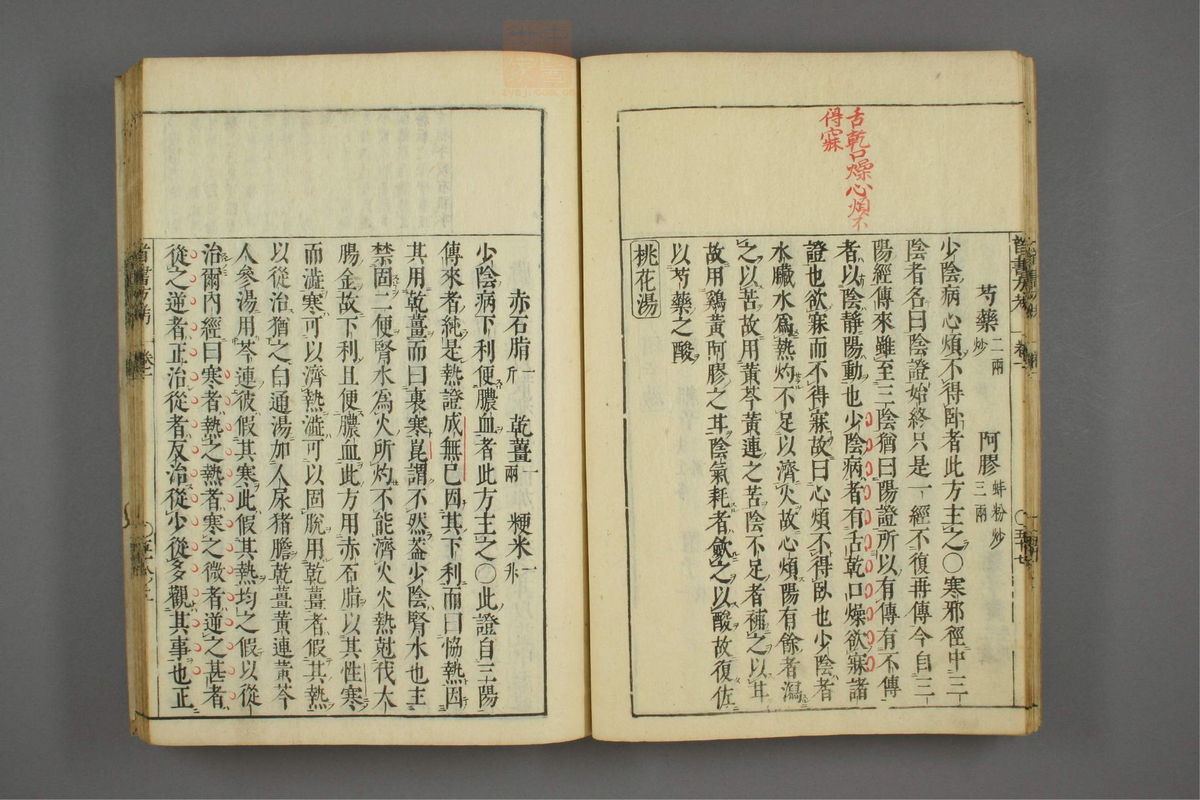 舌乾口燥心煩不
得寐
芍藥二兩炒 阿膠蚌粉炒三兩
少陰病心煩不得卧者此方主之○寒邪徑中三
陰者名曰陰證始終只是一經不復再傳今自三
陽經傳來雖至三陰猶曰陽證所以有傳有不傳
者以陰靜陽動也少陰病者有舌乾口燥欲寐諸
證也欲寐而不得寐故曰心煩不得臥也少陰者
水臟水爲熱灼不足以濟火故心煩陽有餘者瀉
之以苦故用黃芩黃連之苦陰不足者補之以甘
故用鷄黃阿膠之甘陰氣耗者歛之以酸故復佐
以芍藥之酸
桃花湯
赤石脂一斤 乾薑一兩 粳米一升
少陰病下利便膿血者此方主之○此證自三陽
傳來者純是熱證成無已因其下利而曰協熱因
其用乾薑而曰裏寒崑謂不然蓋少陰腎水也主
禁固二便腎水為火所灼不能濟火火熱尅伐大
腸金故下利且便膿血此方用赤石脂以其性寒
而澁寒可以濟熱澁可以固脫用乾薑者假其熱
以從治猶之白通湯加人尿猪膽乾薑黃連黃芩
人參湯用芩連彼假其寒此假其熱均之假以從
治爾內經曰寒者熱之熱者寒之微者逆之甚者
從之逆者正治從者反治從少從多觀其事也正